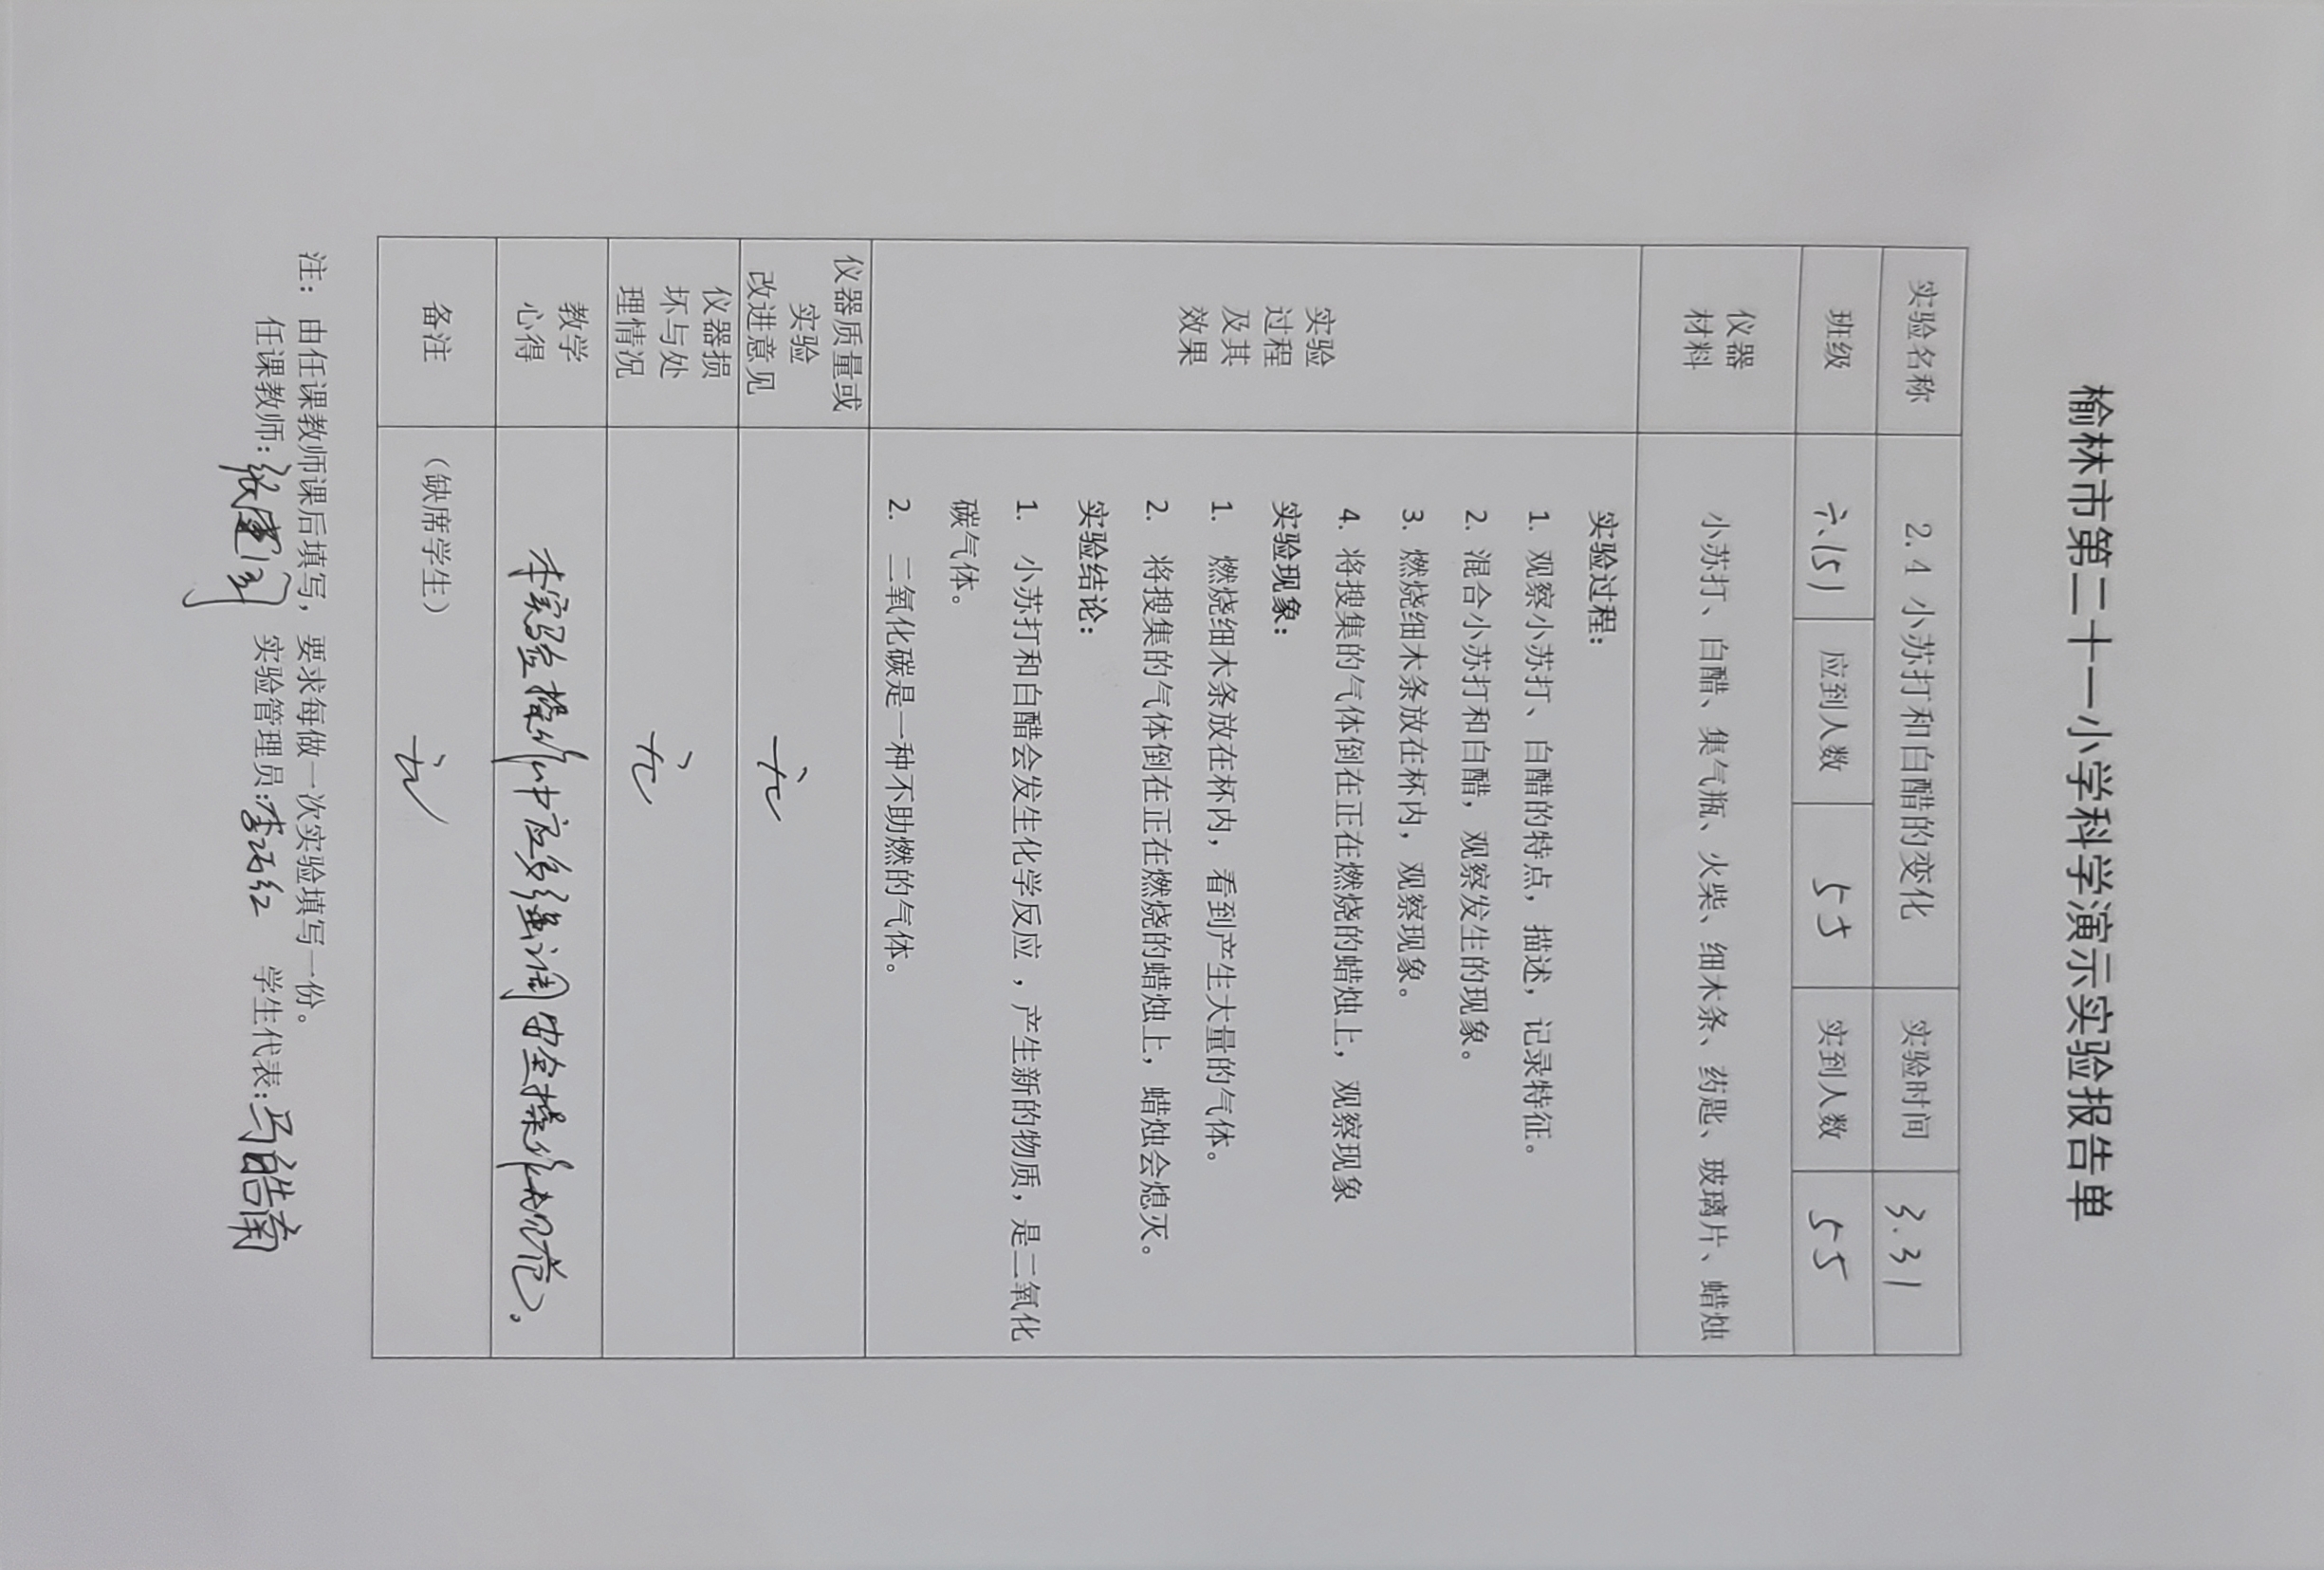 榆林市第二十一小学科学演示实验报告单
实验名称 2.4 小苏打和白醋的变化 实验时间 3.31
班级 六.(5) 应到人数 55 实到人数 55
仪器
材料
小苏打、白醋、集气瓶、火柴、细木条、药匙、玻璃片、蜡烛
实验
过程
及其
效果
实验过程：
1. 观察小苏打、白醋的特点，描述，记录特征。
2. 混合小苏打和白醋，观察发生的现象。
3. 燃烧细木条放在杯内，观察现象。
4. 将搜集的气体倒在正在燃烧的蜡烛上，观察现象
实验现象：
1. 燃烧细木条放在杯内，看到产生大量的气体。
2. 将搜集的气体倒在正在燃烧的蜡烛上，蜡烛会熄灭。
实验结论：
1. 小苏打和白醋会发生化学反应 ，产生新的物质，是二氧化
碳气体。
2. 二氧化碳是一种不助燃的气体。
仪器质量或
实验
改进意见
无
仪器损
坏与处
理情况
无
教学
心得
本实验操作中应多强调安全操作规范。
备注
（缺席学生）
无
注： 由任课教师课后填写，要求每做一次实验填写一份。
任课教师：张建 实验管理员：李 红 学生代表：马皓南